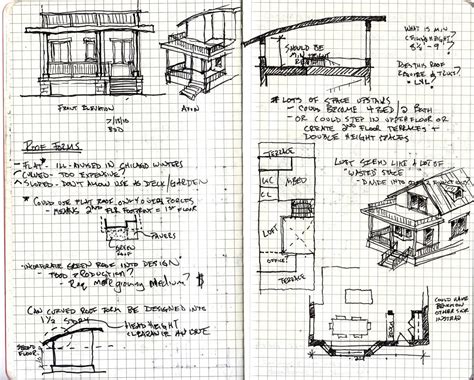 FRONT ELEVATION
AXON
7/15/10
ROOF FORMS
FLAT - ILL-ADVISED IN CHICAGO WINTERS
CURVED - TOO EXPENSIVE?
SLOPED - DON'T ALLOW USE AS DECK/GARDEN
* COULD USE FLAT ROOF ONLY OVER PORCHES
- MEANS 2ND FLR FOOTPRINT = 1ST FLOOR
PAVERS
GREEN
ROOF
* INCORPORATE GREEN ROOF INTO DESIGN
- FOOD PRODUCTION?
GROWING MEDIUM? $
CAN CURVED ROOF FORM BE DESIGNED INTO
1 1/2 STORY
HEAD HEIGHT
CLEARANCE
SECOND
FLOOR
SHOULD
BE
MIN
HEIGHT
WHAT IS MIN
CEILING HEIGHT?
DOES THIS ROOF
REQUIRE A TRUSS?
* LOTS OF SPACE UPSTAIRS
- COULD BECOME 4 BED / 2 BATH
- OR COULD STEP IN UPPER FLOOR OR
CREATE 2ND FLOOR TERRACES +
DOUBLE HEIGHT SPACES
TERRACE
CL
MBED
LOFT
OFFICE
TERRACE
LOFT SEEMS LIKE A LOT OF
"WASTED SPACE"
- DIVIDE INTO
COULD HAVE
BENCH ON
OTHER SIDE
INSTEAD